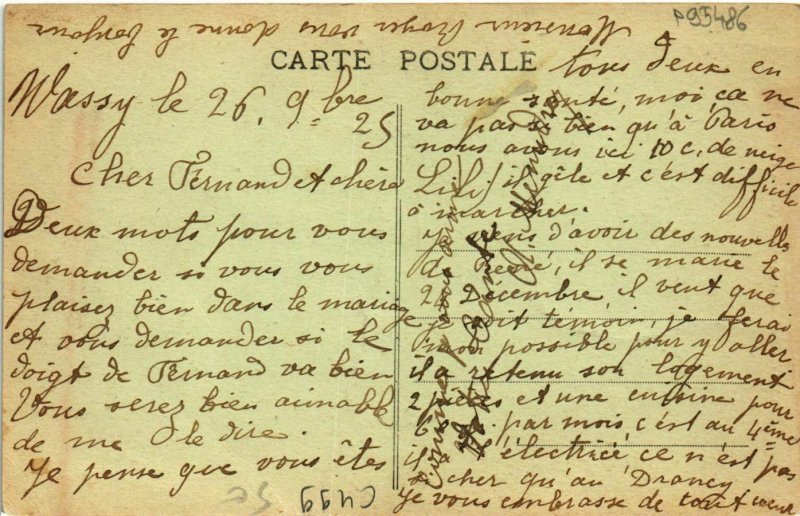 Monsieur Roger vous donne le bonjour
P95486
CARTE POSTALE
Wassy le 26. 9bre
25
Cher Fernand et chère
Deux mots pour vous
demander si vous vous
plaisez bien dans le mariage
et vous demander si le
doigt de Fernand va bien
Vous serez bien aimable
de me le dire.
Je pense que vous êtes
tous deux en
bonne santé, moi ça ne
va pas si bien qu'à Paris
nous avons ici 10 c. de neige
Lili il gèle et c'est difficile
à marcher.
Je viens d'avoir des nouvelles
de René, il se marie le
24 Décembre, il veut que
je soit témoin, je ferai
mon possible pour y aller
il a retenu son lagement
2 pièces et une cuisine pour
par mois, c'est au 4ème
il a l'électricé ce n'est pas
si cher qu'au Drancy
Je vous embrasse de tout cœur
C499
52